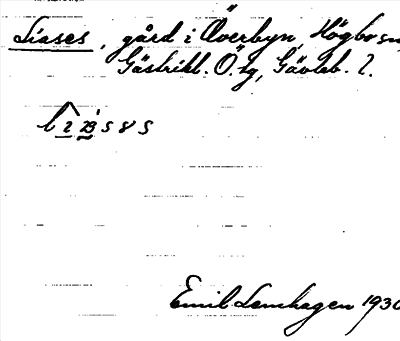 Liases, gård i Överbyn, Högbo sn
Gästrikl. Ö. tg, Gävleb. l.
Emil Lenhagen 1930